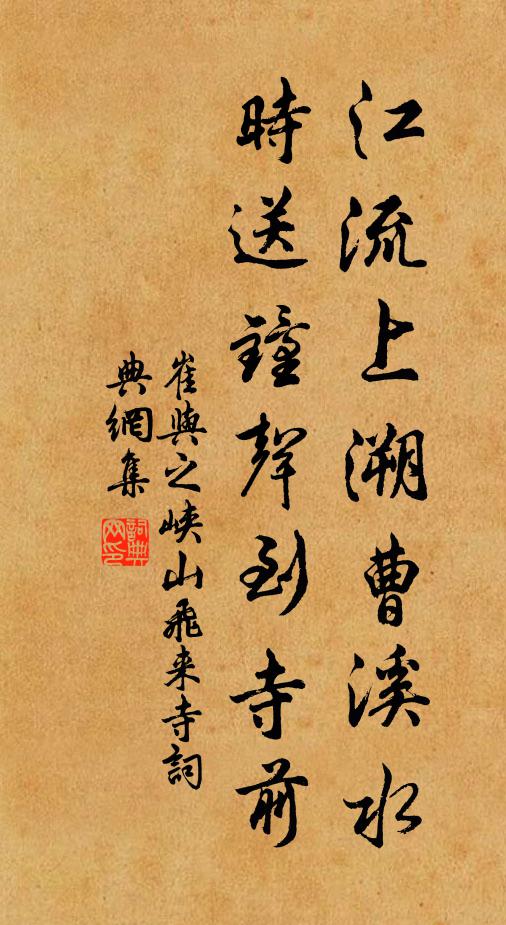 江流上溯曹溪水
時送鐘聲到寺前
崔與之峽山飛来寺詞
典網集
詞典網印